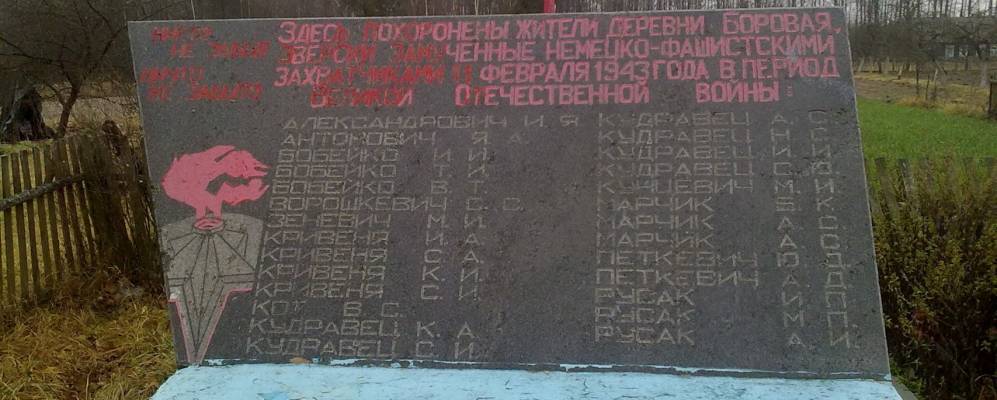 НИКТО
НЕ ЗАБЫТ
НИЧТО
НЕ ЗАБЫТО
ЗДЕСЬ ПОХОРОНЕНЫ ЖИТЕЛИ ДЕРЕВНИ БОРОВАЯ,
ЗВЕРСКИ ЗАМУЧЕННЫЕ НЕМЕЦКО-ФАШИСТСКИМИ
ЗАХВАТЧИКАМИ 11 ФЕВРАЛЯ 1943 ГОДА В ПЕРИОД
ВЕЛИКОЙ ОТЕЧЕСТВЕННОЙ ВОЙНЫ:
АЛЕКСАНДРОВИЧ И. Я
АНТОНОВИЧ Я. А.
БОБЕЙКО И. И.
БОБЕЙКО Т. И.
БОБЕЙКО В. Т.
ВОРОШКЕВИЧ С. С.
ЗЕНЕВИЧ М. И.
КРИВЕНЯ И. А.
КРИВЕНЯ С. А.
КРИВЕНЯ К. И.
КРИВЕНЯ С. И.
КОТ В. С.
КУДРАВЕЦ К. А.
КУДРАВЕЦ С. И.
КУДРАВЕЦ А. С.
КУДРАВЕЦ Н. С.
КУДРАВЕЦ И. И.
КУДРАВЕЦ С. О.
КУНЦЕВИЧ М. И.
МАРЧИК Б. К.
МАРЧИК А. С.
МАРЧИК А. С.
ПЕТКЕВИЧ Ю. Д.
ПЕТКЕВИЧ А. Д.
РУСАК И. П.
РУСАК М. П.
РУСАК А. И.